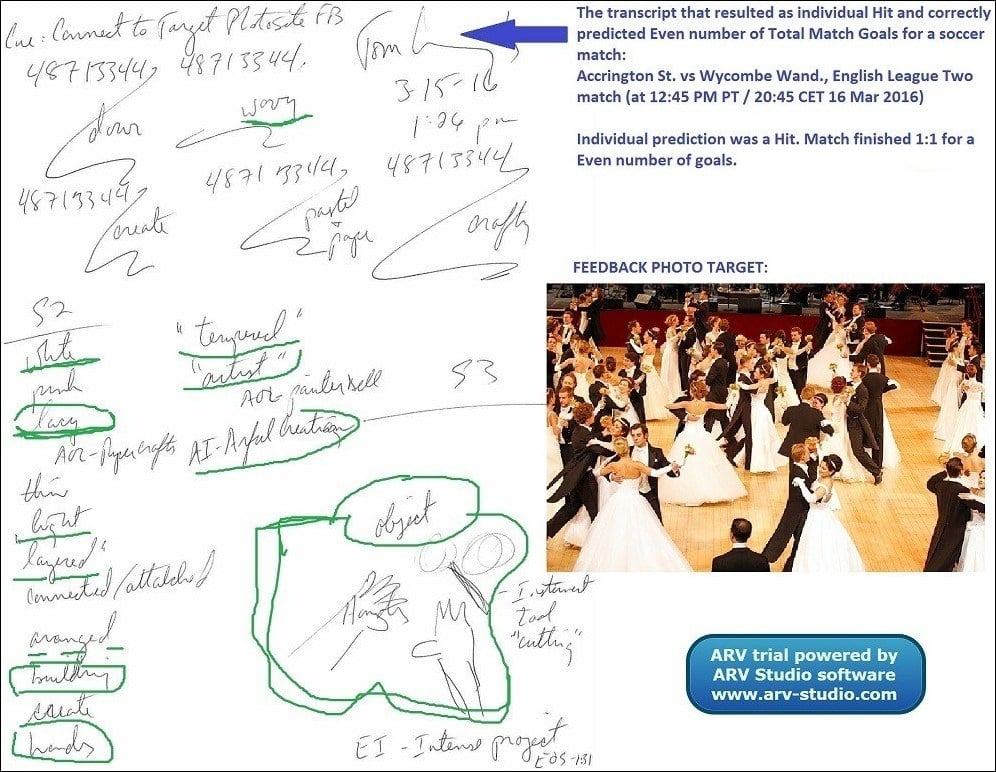 Cue: Connect to Target Photosite FB
48713344, 48713344,
Tom
3-15-16
1:26 pm
down
wavy
48713344
48713344,
48713344,
create
pastel
+
paper
crafty
S2
white
pink
lacy
AOL-Papercrafts
thin
light
"layered"
connected/attached
aranged
building
create
hands
"tempered"
"artist"
AOL-
AI-Artful Creation
S3
object
- Instrument
tool
"cutting"
EI - Intense project
EOS-131
The transcript that resulted as individual Hit and correctly
predicted Even number of Total Match Goals for a soccer
match:
Accrington St. vs Wycombe Wand., English League Two
match (at 12:45 PM PT / 20:45 CET 16 Mar 2016)
Individual prediction was a Hit. Match finished 1:1 for a
Even number of goals.
FEEDBACK PHOTO TARGET:
ARV trial powered by
ARV Studio software
www.arv-studio.com